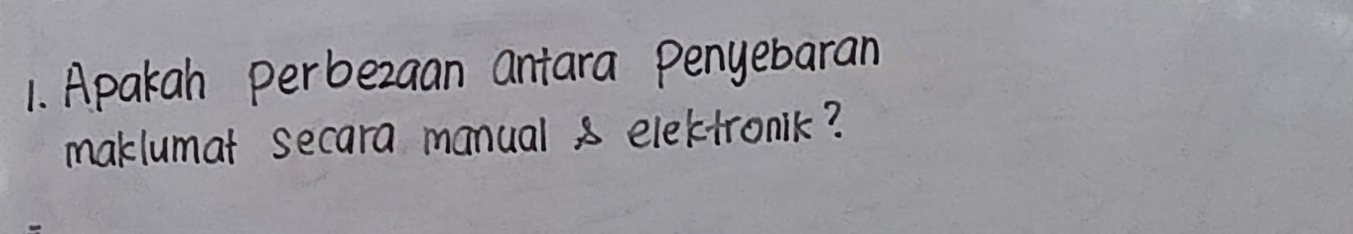 1. Apakah perbezaan antara penyebaran
maklumat secara manual & elektronik?